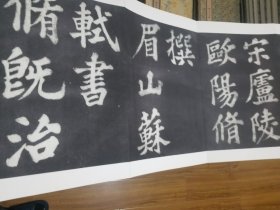 宋廬陵
歐陽脩
撰
眉山蘇
軾書
脩既治